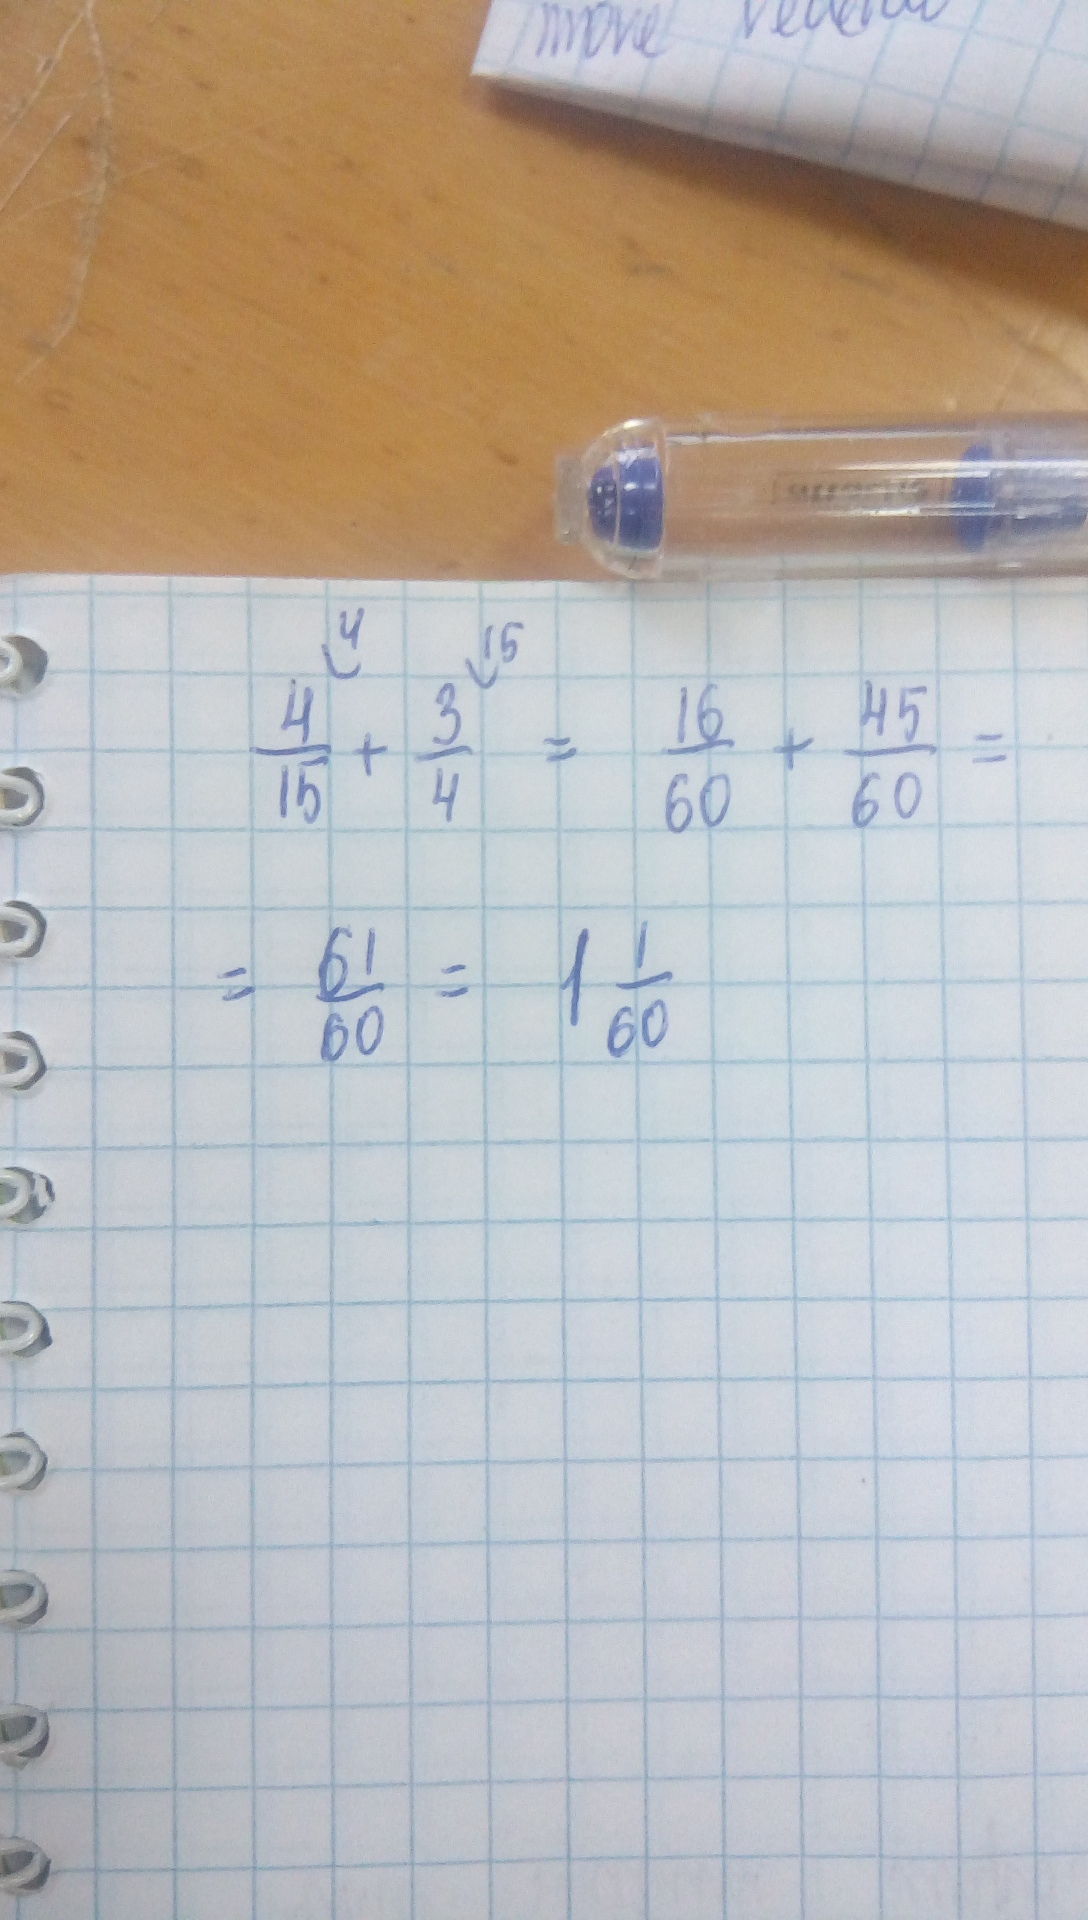 4 15
4/15 + 3/4 = 16/60 + 45/60 =
= 61/60 = 1 1/60